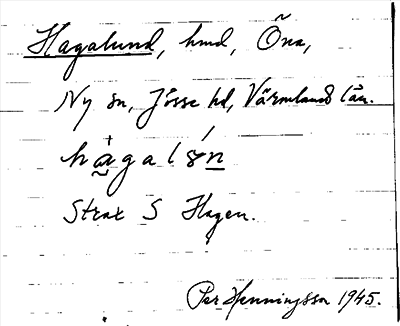 Hagalund, hmd, Öna,
Ny sn, Jösse hd, Värmlands län.
hagalón
Strax S Hagen.
Per Henningsson 1945.